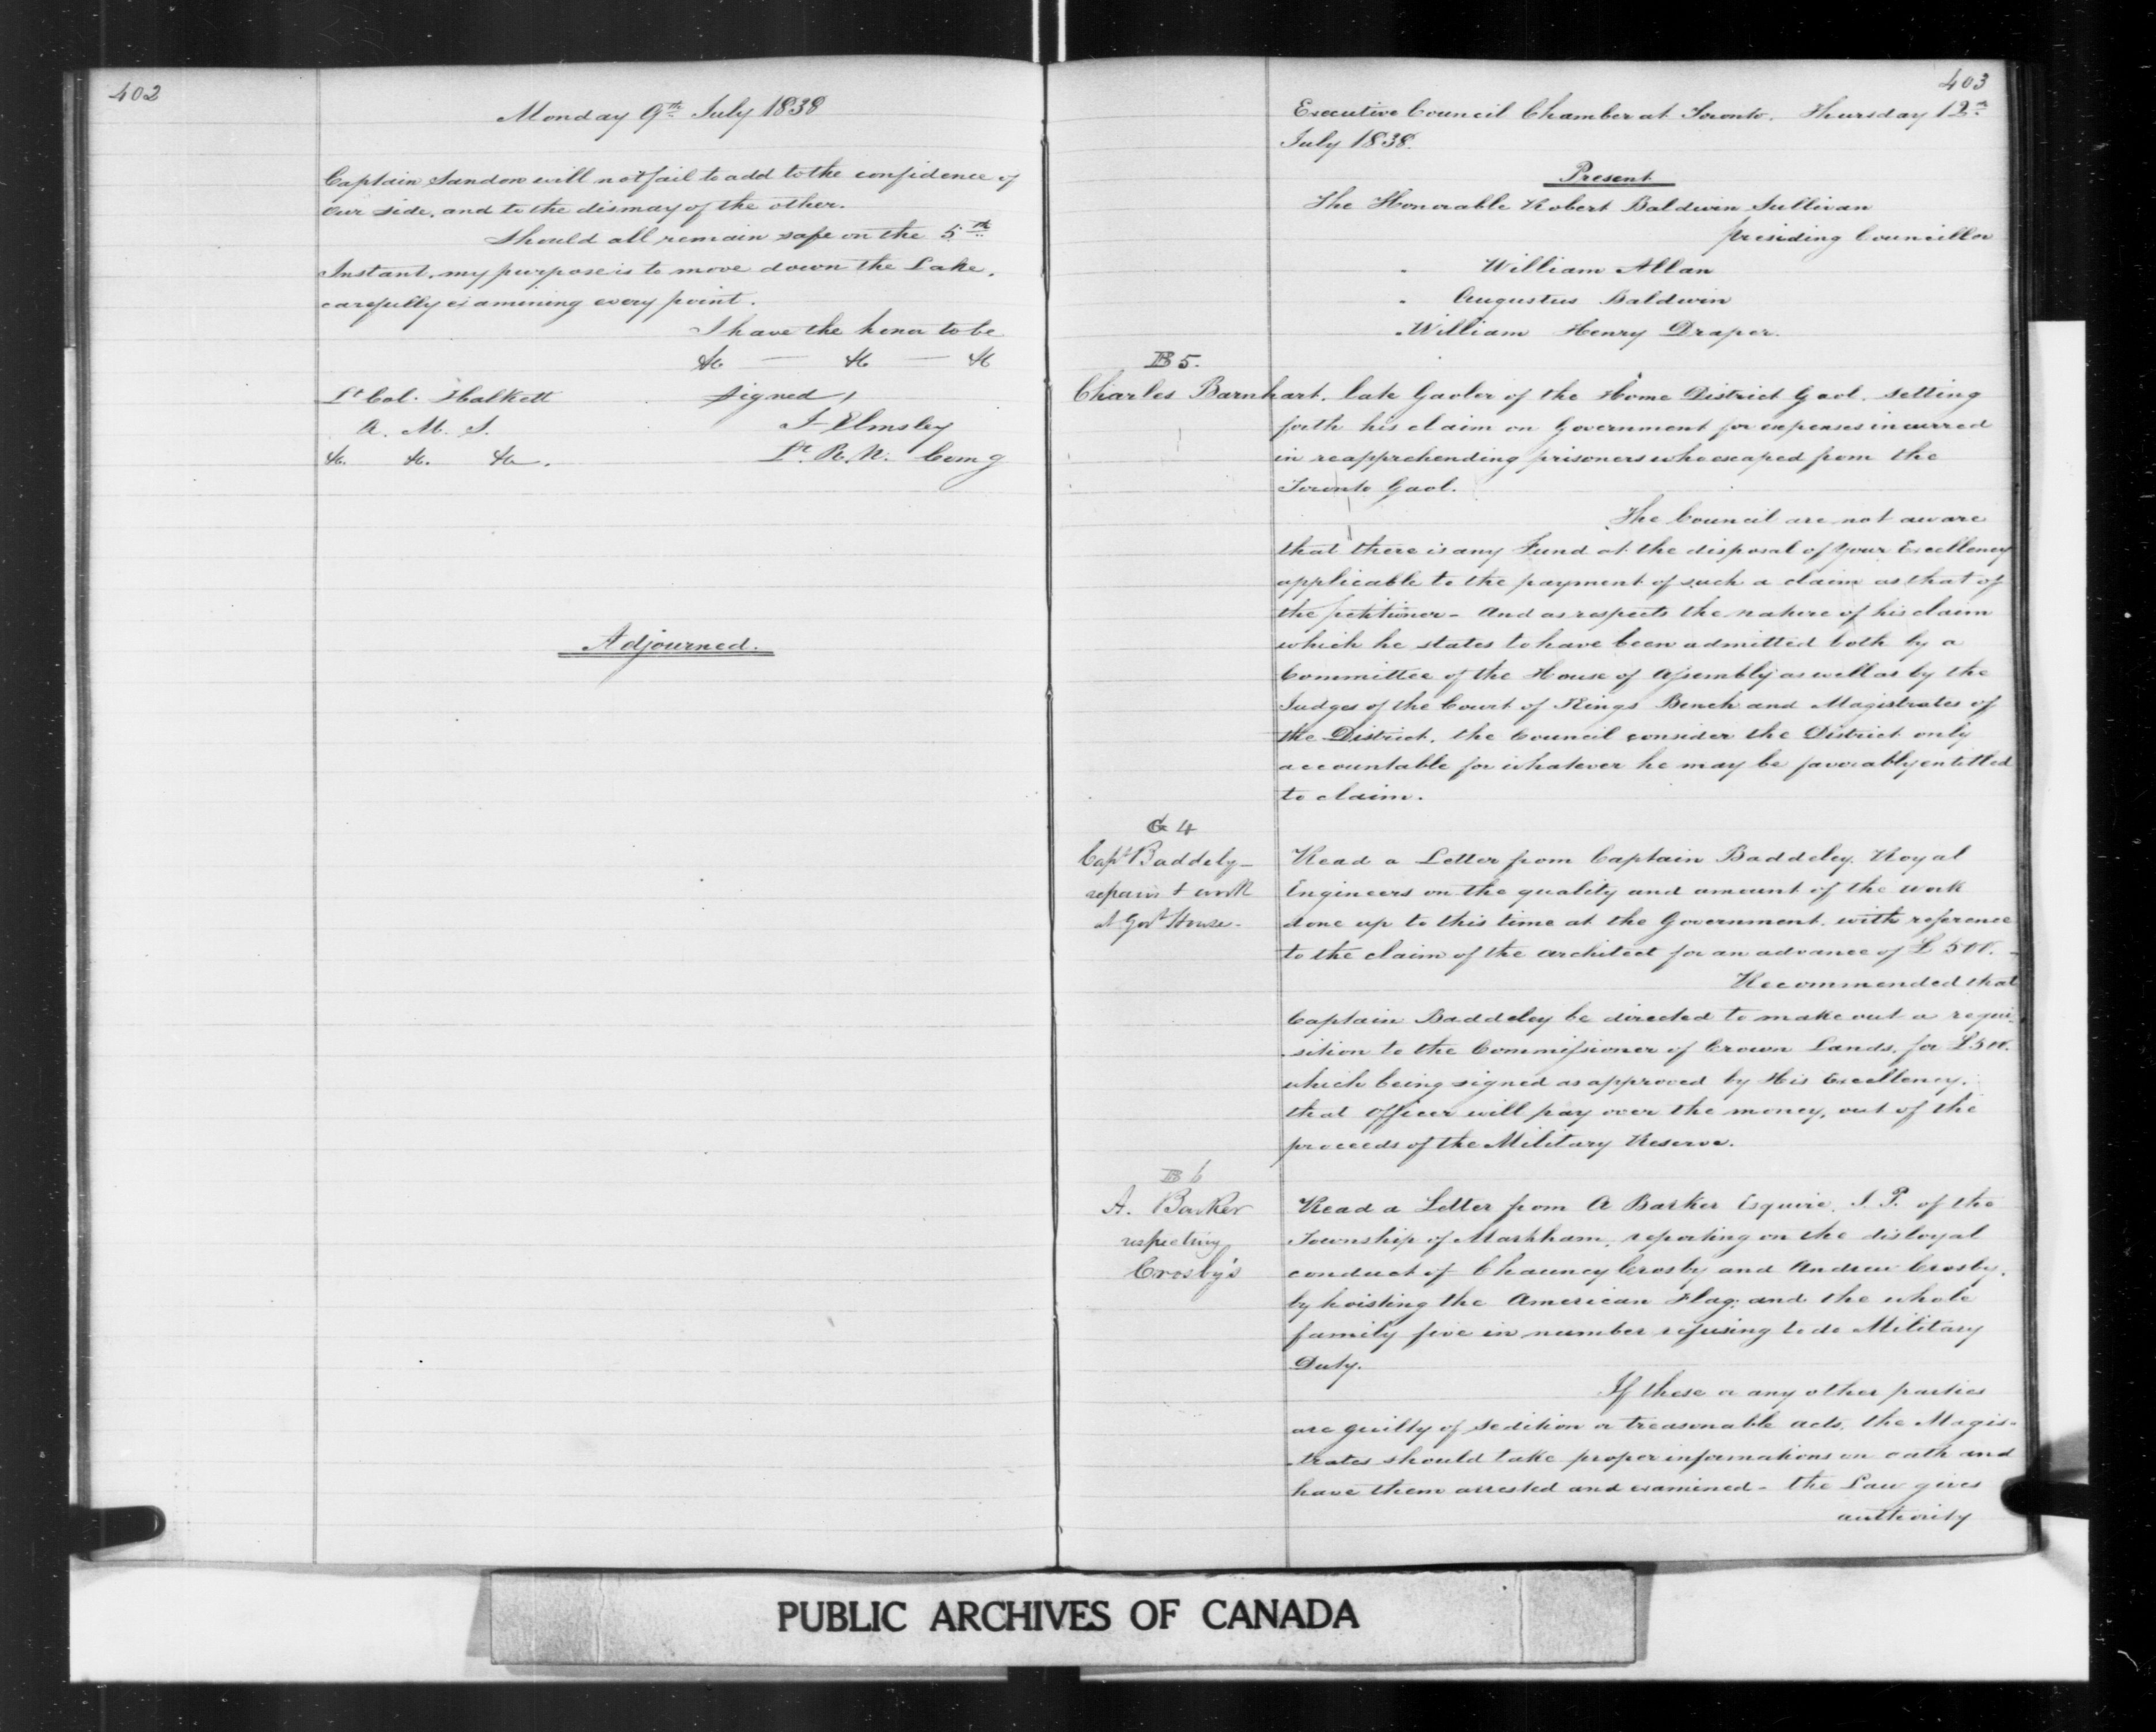 402
Monday 9th July 1838
Captain Sandom will not fail to add to the confidence of
our side, and to the dismay of the other.
Should all remain safe on the 5th
Instant, my purpose is to move down the Lake,
carefully examining every point.
I have the honor to be
&c — &c — &c
Lt Col. Halkett
Signed,
A. M. S.
J Elmsley
&c. &c. &c.
Lt. R. N. Comg
Adjourned.
403
Executive Council Chamber at Toronto. Thursday 12th
July 1838.
Present
The Honorable Robert Baldwin Sullivan
presiding Councillor
" William Allan
" Augustus Baldwin
" William Henry Draper.
B 5.
Charles Barnhart, late Gaoler of the Home District Gaol, setting
forth his claim on Government for expenses incurred
in reapprehending prisoners who escaped from the
Toronto Gaol.
The Council are not aware
that there is any Fund at the disposal of Your Excellency
applicable to the payment of such a claim as that of
the petitioner - And as respects the nature of his claim
which he states to have been admitted both by a
Committee of the House of Assembly as well as by the
Judges of the Court of Kings Bench and Magistrates of
the District, the Council consider the District only
accountable for whatever he may be favorably entitled
to claim.
G 4
Capt Baddely -
repairs & work
at Govt House -
Read a Letter from Captain Baddeley, Royal
Engineers on the quality and amount of the work
done up to this time at the Government with reference
to the claim of the Architect for an advance of £500. -
Recommended that
Captain Baddeley be directed to make out a requi-
-sition to the Commissioner of Crown Lands, for £500.
which being signed as approved by His Excellency,
that Officer will pay over the money, out of the
proceeds of the Military Reserve.
B 6
A. Barker
respecting
Crosby's
Read a Letter from A Barker Esquire, J. P. of the
Township of Markham, reporting on the disloyal
conduct of Chauncy Crosby and Andrew Crosby,
by hoisting the American Flag, and the whole
family five in number refusing to do Military
Duty.
If these or any other parties
are guilty of sedition or treasonable acts, the Magis-
-trates should take proper informations on oath and
have them arrested and examined - the Law gives
authority
PUBLIC ARCHIVES OF CANADA